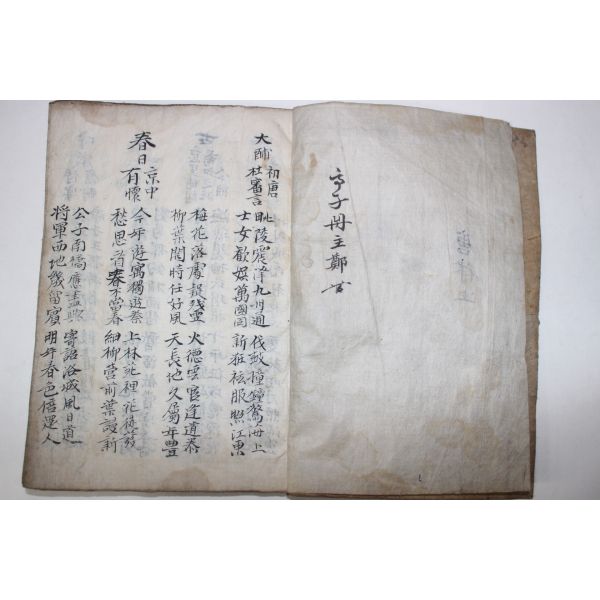 子冊主鄭
大酺
初唐
杜審言
毗陵震澤九州通 伐鼓撞鐘驚海上
士女歡娛萬國同 新粧袨服照江東
梅花落處疑殘雪 火德雲官逢道泰
柳葉開時任好風 天長地久屬年豊
春日
京中
有懷
今年遊寓獨遊秦 上林苑裡花徒發
愁思看春不當春 細柳營前葉謾新
公子南橋應盡興 寄語洛城風日道
將軍西地幾留賓 明年春色倍還人